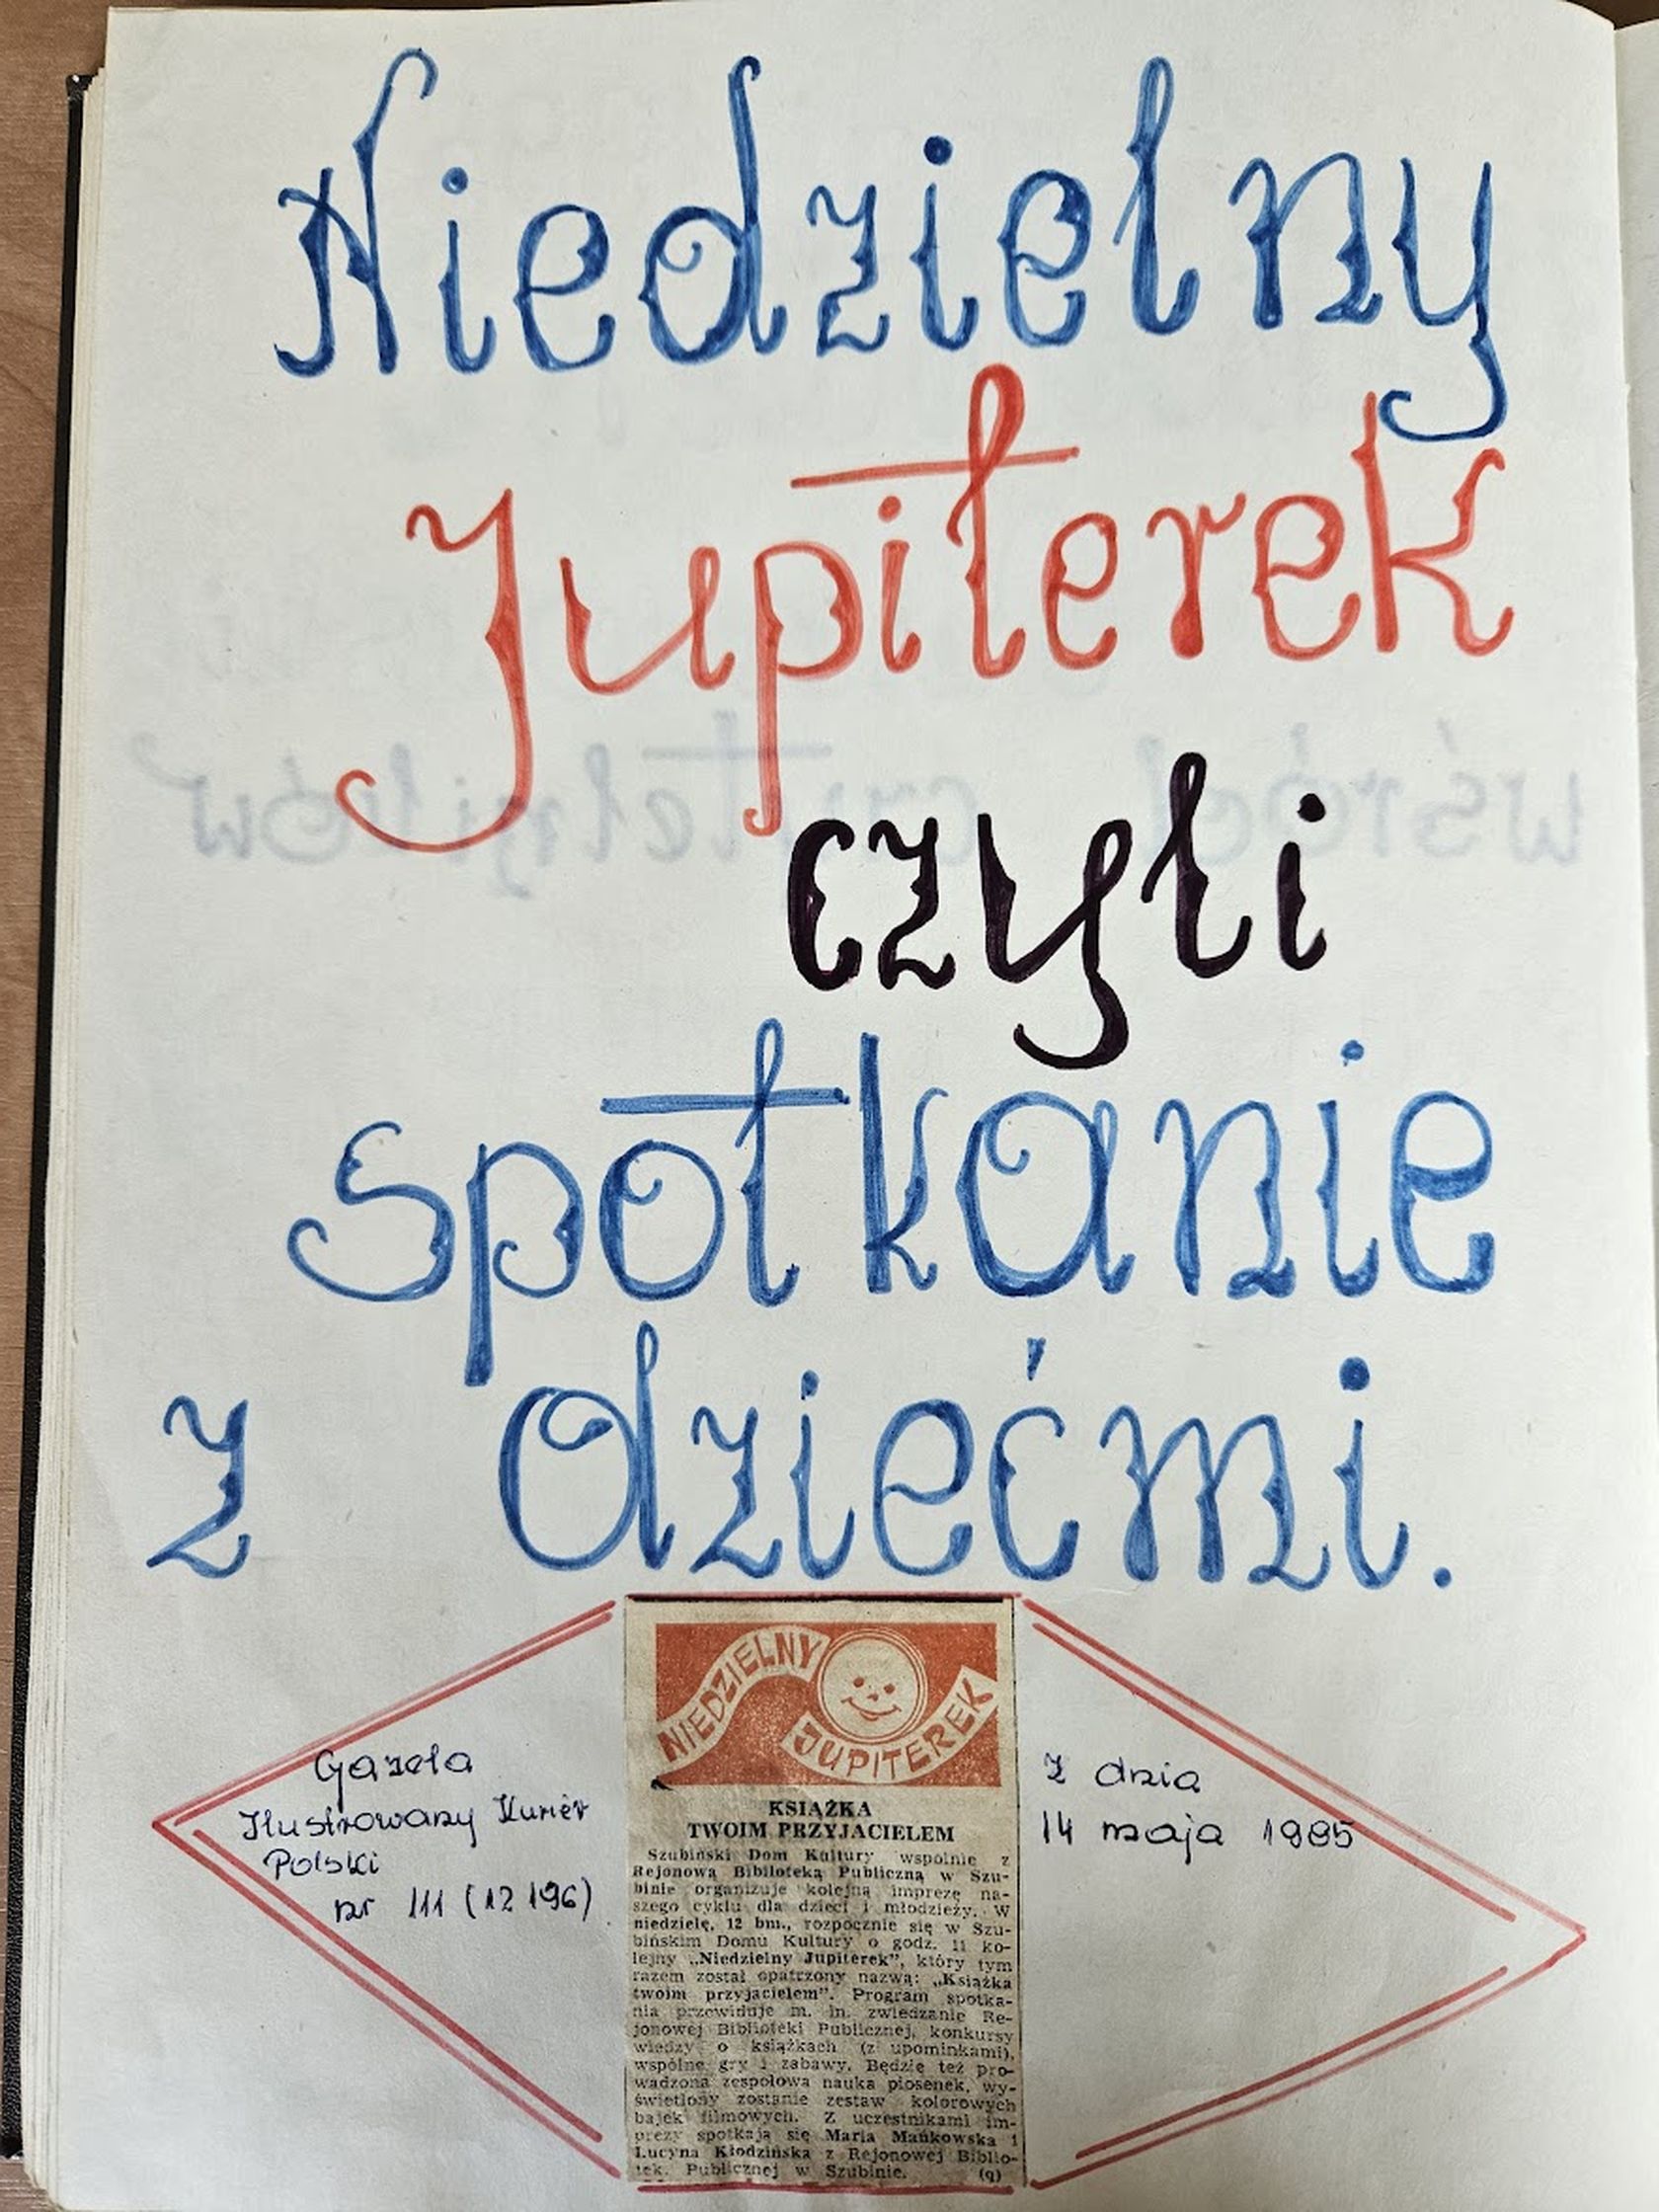 Niedzielny
Jupiterek
czyli
spotkanie
z dziećmi.
Gazeta
Ilustrowany Kurier
Polski
nr 111 (12 196)
NIEDZIELNY
JUPITEREK
KSIĄŻKA
TWOIM PRZYJACIELEM
Szubiński Dom Kultury wspólnie z
Rejonową Biblioteką Publiczną w Szu-
binie organizuje kolejną imprezę na-
szego cyklu dla dzieci i młodzieży. W
niedzielę, 12 bm., rozpocznie się w Szu-
bińskim Domu Kultury o godz. 11 ko-
lejny „Niedzielny Jupiterek”, który tym
razem został opatrzony nazwą: „Książka
twoim przyjacielem”. Program spotka-
nia przewiduje m. in. zwiedzanie Re-
jonowej Biblioteki Publicznej, konkursy
wiedzy o książkach (z upominkami),
wspólne gry i zabawy. Będzie też pro-
wadzona zespołowa nauka piosenek, wy-
świetlony zostanie zestaw kolorowych
bajek filmowych. Z uczestnikami im-
prezy spotkają się Maria Mańkowska i
Lucyna Kłodzińska z Rejonowej Biblio-
tek. Publicznej w Szubinie. (q)
Z dnia
14 maja 1985